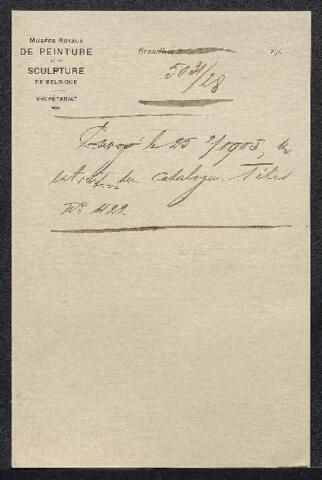 MUSÉES ROYAUX
DE PEINTURE
ET DE
SCULPTURE
DE BELGIQUE
SECRÉTARIAT
Bruxelles
190
50 31/28
Envoyé le 25 2/1905, un
extrait du catalogue Fétis
N° 422